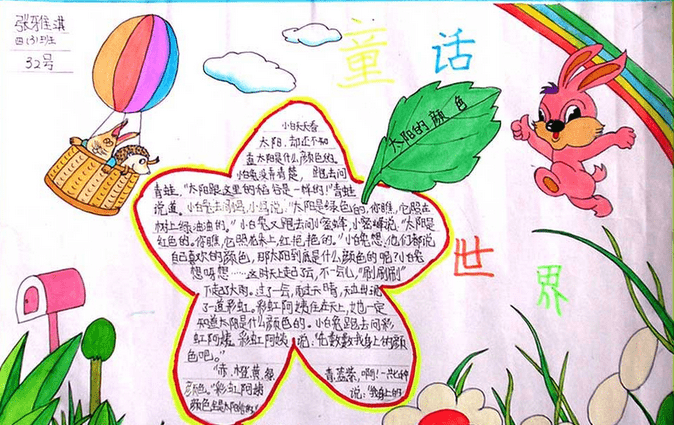 张雅淇
四(3)班
32号
童话
世界
太阳的颜色
小白兔天天看
太阳,却还不知
直太阳是什么颜色的。
小白兔没弄清楚,跑去问
青蛙,“太阳跟这里的稻谷是一样的!”青蛙
说道。小白兔去问小鸟,小鸟说,“太阳是绿色的,你瞧,它照在
树上绿油油的。”小白兔又跑去问小蜜蜂,小蜜蜂说,“太阳是
红色的。你瞧,它照花朵上,红艳艳的。”小白兔想,他们都说
自己喜欢的颜色,那太阳到底是什么颜色的呢?小白兔
想呀想……这时天上起了云,不一会儿,“刷刷刷”
下起了大雨。过了一会,雨过天晴,天边出现
了一道彩虹。彩虹阿姨住在天上,她一定
知道太阳是什么颜色的。小白兔跑去问彩
虹阿姨,彩虹阿姨说:“你数数我身上的颜
色吧。”
“赤、橙、黄、绿、
青、蓝、紫,啊!一共七种
颜色。”彩虹阿姨
说:“我身上的
颜色就是太阳的